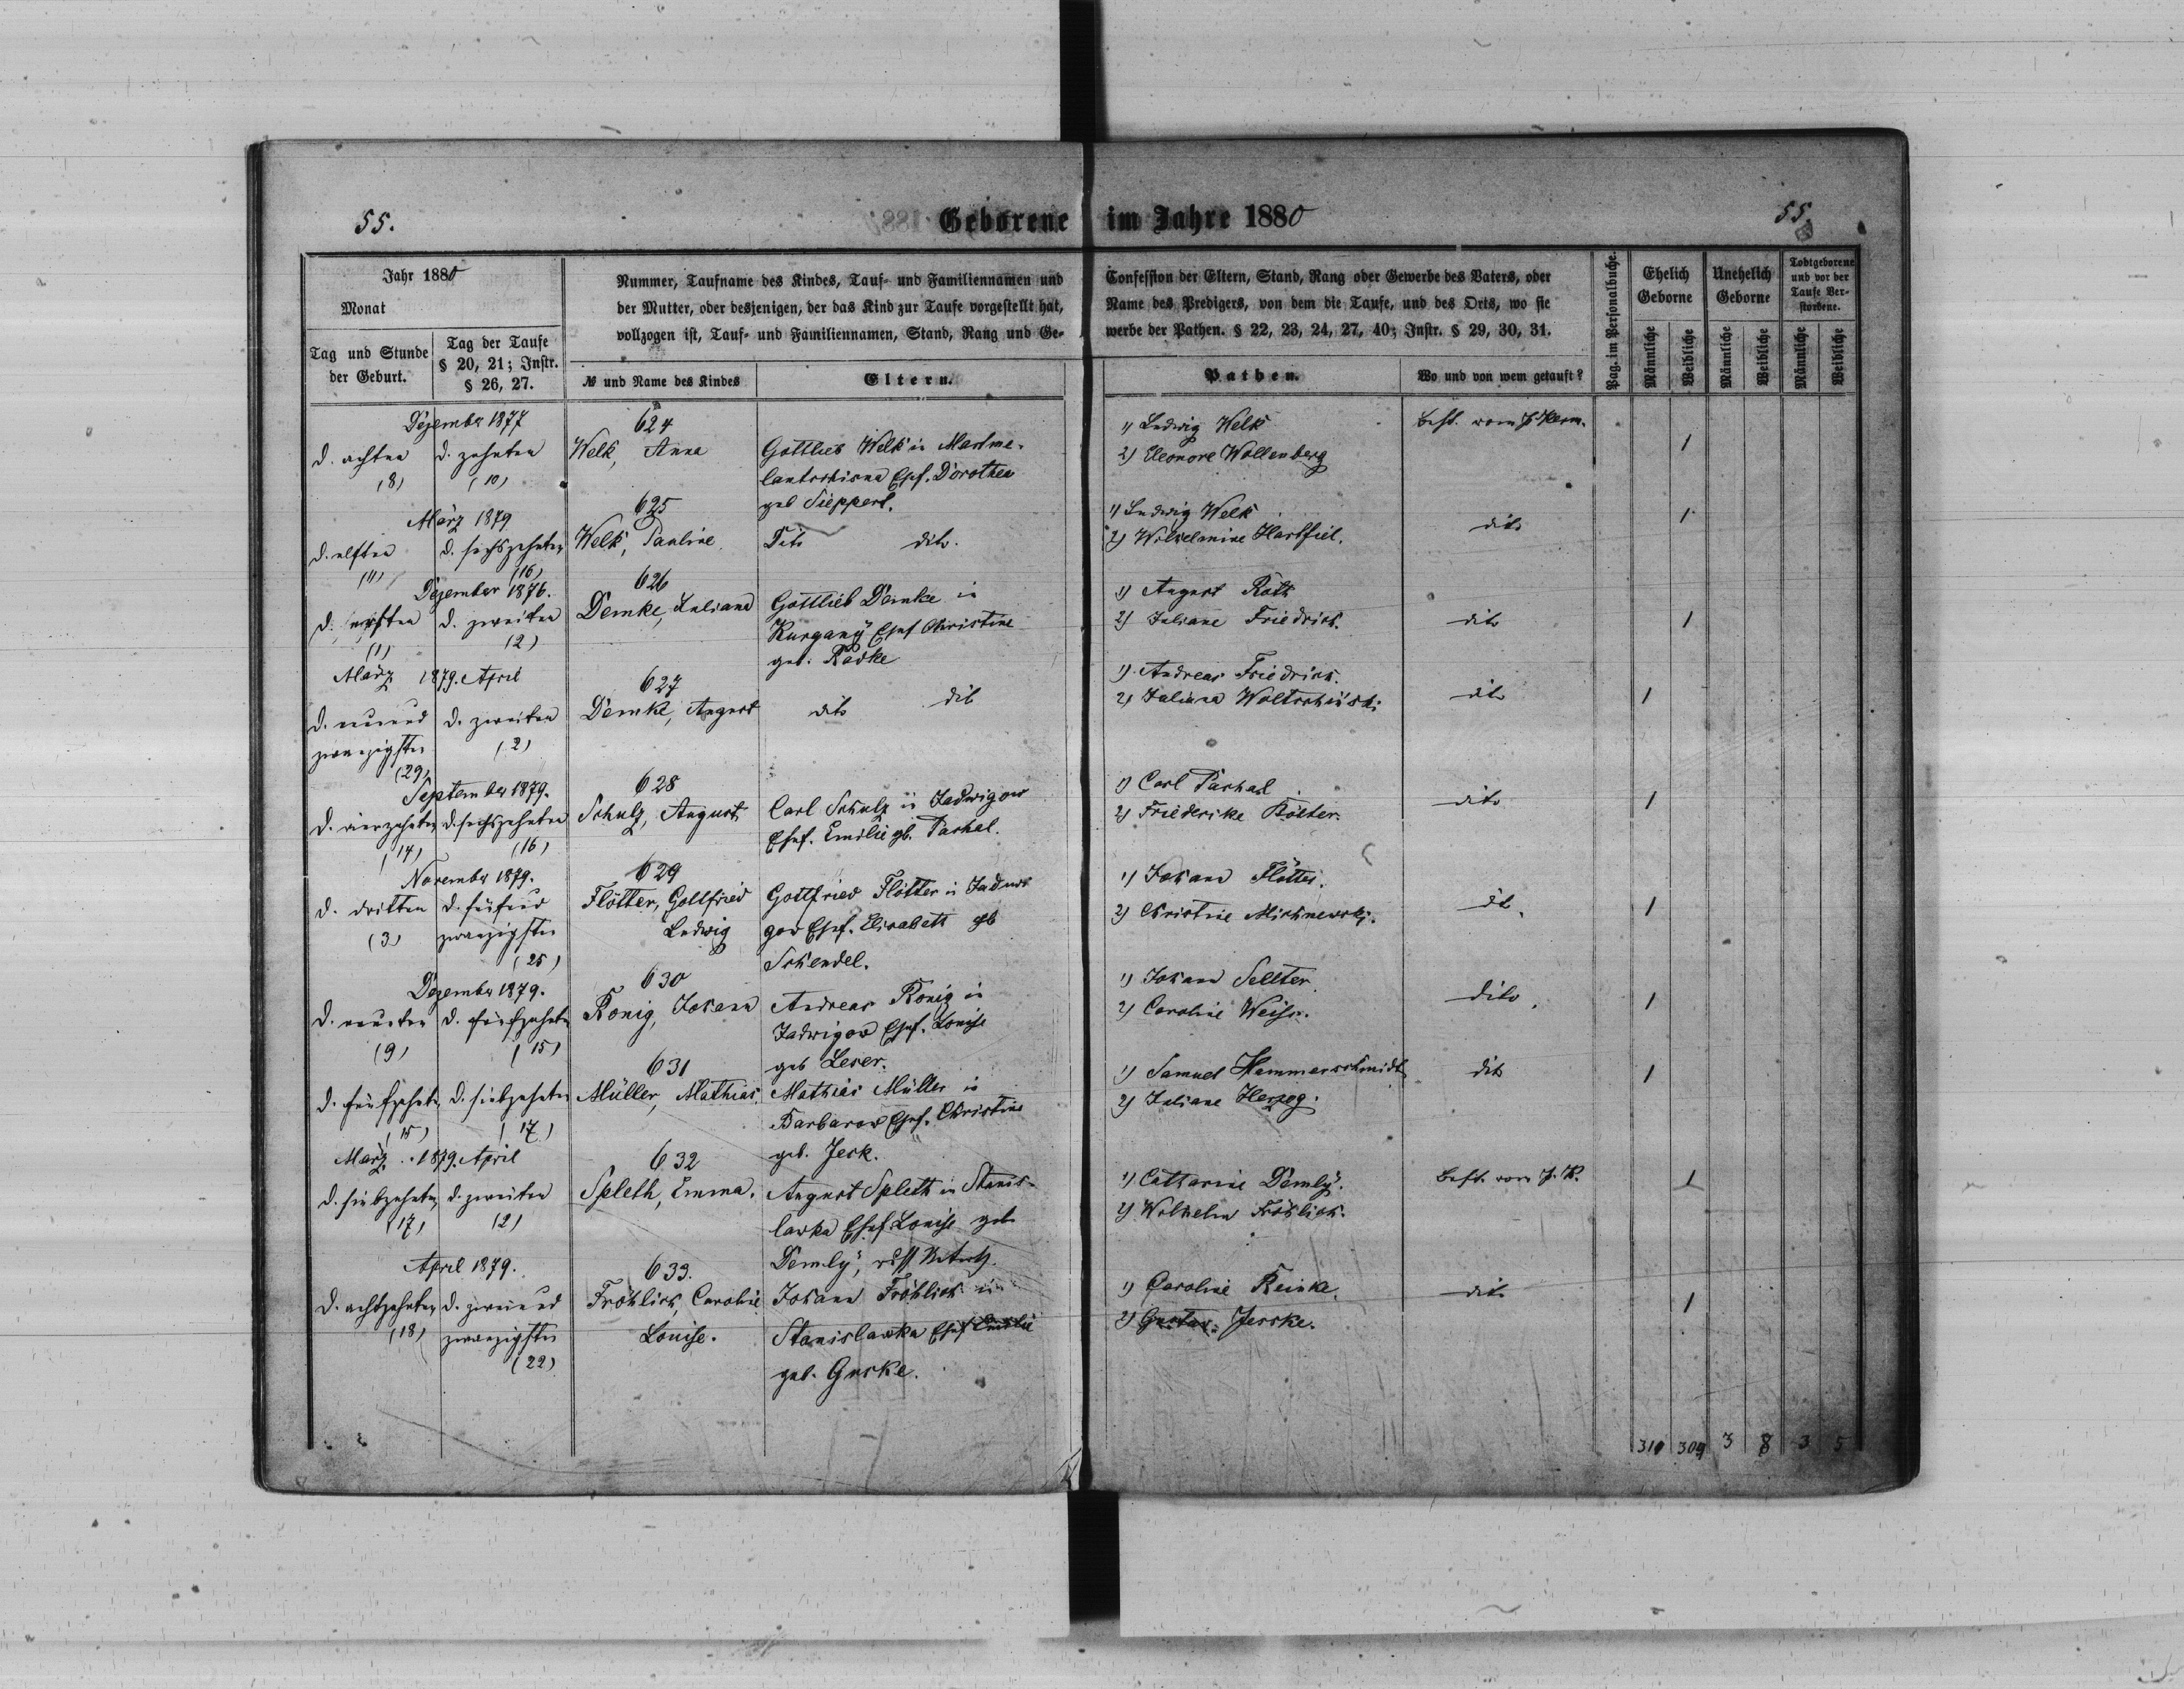 55.
Geborene im Jahre 1880
55.
Jahr 1880
Monat
Tag und Stunde der Geburt.
Tag der Taufe § 20, 21; Instr. § 26, 27.
Nummer, Taufname des Kindes, Tauf- und Familiennamen und
der Mutter, oder desjenigen, der das Kind zur Taufe vorgestellt hat,
vollzogen ist, Tauf- und Familiennamen, Stand, Rang und Ge-
№ und Name des Kindes
Eltern.
Confession der Eltern, Stand, Rang oder Gewerbe des Vaters, oder
Name des Predigers, von dem die Taufe, und des Orts, wo sie
werbe der Pathen. § 22, 23, 24, 27, 40; Instr. § 29, 30, 31.
Pathen.
Wo und von wem getauft?
Pag. im Personalbuche.
Ehelich Geborne
Unehelich Geborne
Todtgeborene und vor der Taufe Verstorbene.
Männliche
Weibliche
Männliche
Weibliche
Männliche
Weibliche
Dezember 1877
d. achten
(8)
d. zehnten
(10)
624
Welk, Anna
Gottlieb Welk in
Ehf. Dorothea
geb
1) Ludwig Welk
2) Eleonore Wollenberg
1
März 1879
d. elften
(11)
d. sechszehnten
(16)
625
Welk, Pauline
Dito dito.
1) Ludwig Welk
2) Wilhelmine
dito
1
Dezember 1876.
d. ersten
(1)
d. zweiten
(2)
626
Demke, Juliana
Gottlieb Demke in
Kurgany Ehf Christine
geb. Radke
1) August Roth
2) Juliane Friedrich.
dito
1
März 1879. April
d. neunund
zwanzigsten
(29)
d. zweiten
(2)
627
Demke, August
dito dito
1) Andreas Friedrich.
2) Juliana
dito
1
September 1879.
d. vierzehnten
(14)
d. sechszehnten
(16)
628
Schulz, August
Carl Schulz in Jadwigow
Ehf. Emilie gb. Pachal.
1) Carl Pachal
2) Friederike
dito
1
November 1879.
d. dritten
(3)
d. fünfund
zwanzigsten
(25)
629
Flötter, Gottfried
Ludwig
Gottfried Flötter in Jadwi
gow Ehf. Elisabeth gb
Schendel.
1) Johann Flötter.
2) Christine
dit.
1
Dezember 1879.
d. neunten
(9)
d. fünfzehnten
(15)
630
König, Johann
Andreas König in
Jadwigow Ehf. Louise
geb Leser.
1) Johann
2) Caroline Weiss.
dito.
1
d. fünfzehnten
(15)
d. siebzehnten
(17)
631
Müller, Mathias
Mathias Müller in
Barbarow Ehf. Christine
geb. Jesk.
1) Samuel Hammerschmidt
2) Juliane Herzog.
dito
1
März 1879. April
d. siebzehnten
(17)
d. zweiten
(2)
632
Spleth, Emma.
August Spleth in Stanis-
lawka Ehf Louise geb
Demly,
1) Catharine Demly.
2) Wilhelm Fröhlich.
1
April 1879.
d. achtzehnten
(18)
d. zweiund
zwanzigsten
(22)
633.
Fröhlich, Caroline
Louise.
Johann Fröhlich in
Stanislawka Ehf Emilie
geb. Guske.
1) Caroline Reinke.
2) Gustav Jeschke.
dito
1
310 309 3 8 3 5